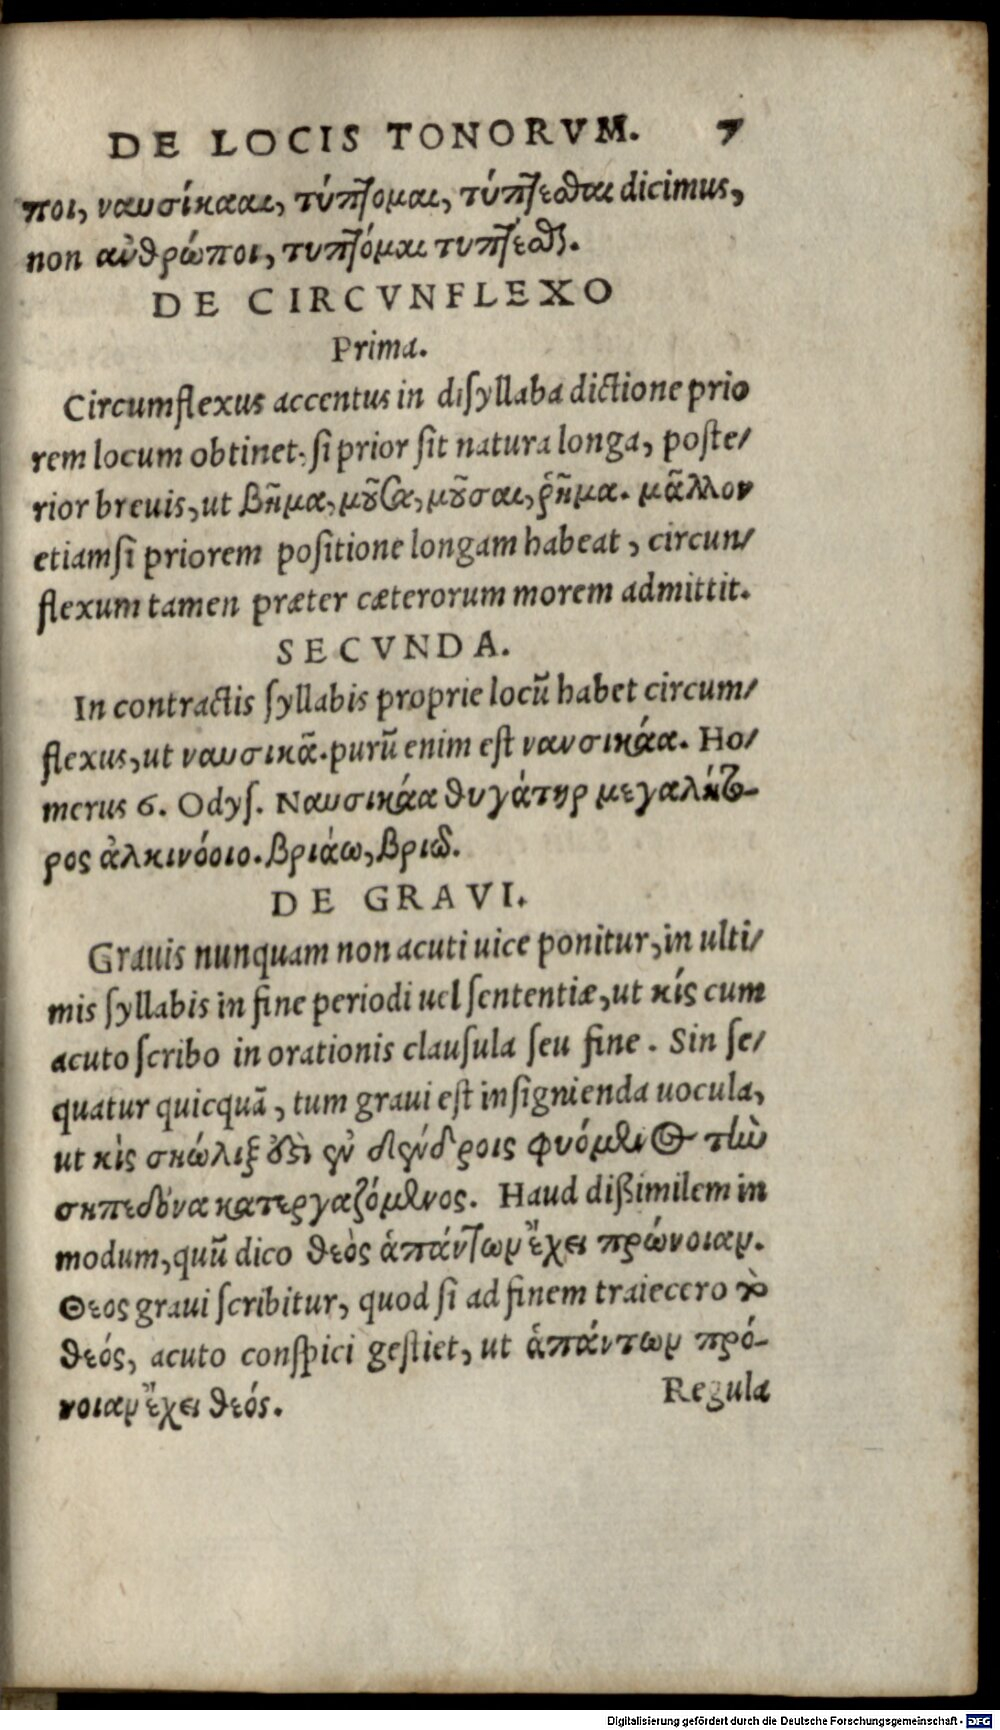 DE LOCIS TONORVM. 7
ποι, ναυσίκααι, τύπτομαι, τύπτεσθαι dicimus,
non ανθρώποι, τυπτόμαι τυπτέσθαι.
DE CIRCVNFLEXO
Prima.
Circumflexus accentus in disyllaba dictione prio
rem locum obtinet, si prior sit natura longa, poste/
rior breuis, ut βῆμα, μοῦσα, μοῦσαι, ῥῆμα. μᾶλλον
etiamsi priorem positione longam habeat, circun/
flexum tamen præter cæterorum morem admittit.
SECVNDA.
In contractis syllabis proprie locũ habet circum/
flexus, ut ναυσικᾶ. purũ enim est ναυσικάα. Ho/
merus 6. Odys. Ναυσικάα θυγάτηρ μεγαλήτο-
ρος ἀλκινόοιο. βριάω, βριῶ.
DE GRAVI.
Grauis nunquam non acuti uice ponitur, in ulti/
mis syllabis in fine periodi uel sententiæ, ut κίς cum
acuto scribo in orationis clausula seu fine. Sin se/
quatur quicquã, tum graui est insignienda uocula,
ut κὶς σκώλιξ ἐν δένδροις φυόμενος τὴν
σηπεδόνα κατεργαζόμενος. Haud dißimilem in
modum, quũ dico θεὸς ἁπάντων ἔχει πρώνοιαν.
Θεος graui scribitur, quod si ad finem traiecero τὸ
θεός, acuto conspici gestiet, ut ἁπάντων πρό-
νοιαν ἔχει θεός.
Regula
Digitalisierung gefördert durch die Deutsche Forschungsgemeinschaft - DFG